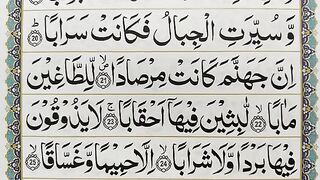 وَّ سُيِّرَتِ الْجِبَالُ فَكَانَتْ سَرَابًا ؕ ﴿20﴾
اِنَّ جَهَنَّمَ كَانَتْ مِرْصَادًا ۙ ﴿21﴾ لِّلطَّاغِيْنَ
مَاٰبًا ۙ ﴿22﴾ لّٰبِثِيْنَ فِيْهَاۤ اَحْقَابًا ۚ ﴿23﴾ لَا يَذُوْقُوْنَ
فِيْهَا بَرْدًا وَّ لَا شَرَابًا ۙ ﴿24﴾ اِلَّا حَمِيْمًا وَّ غَسَّاقًا ۙ ﴿25﴾